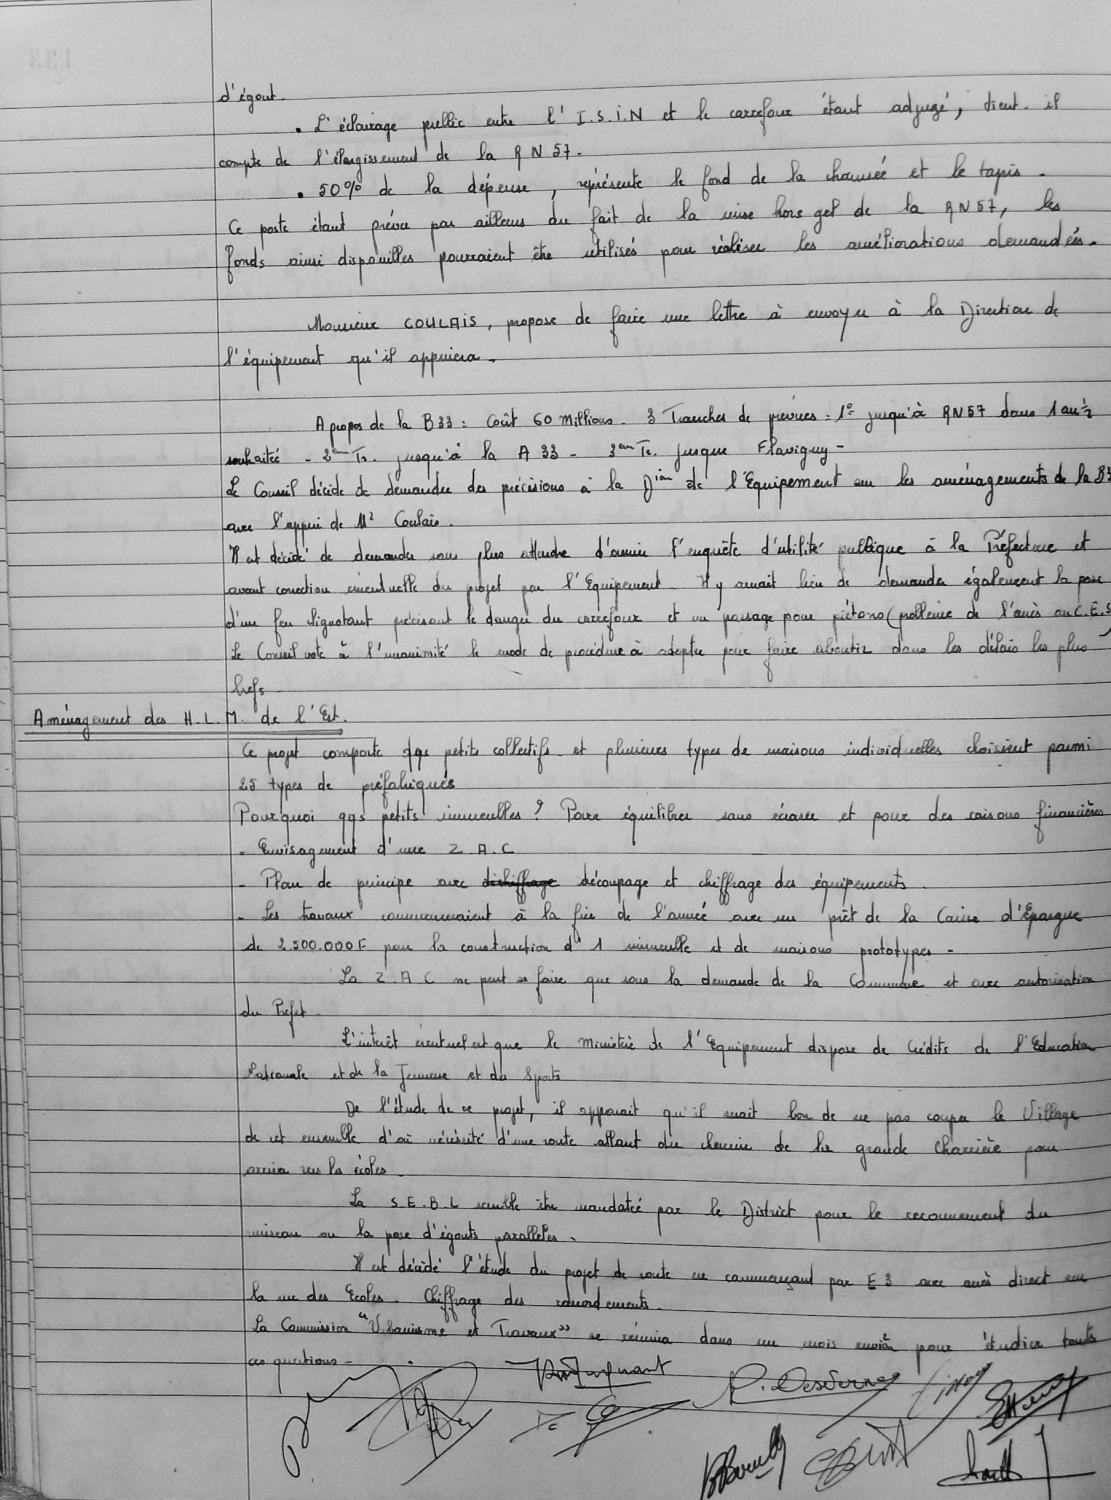 d'égout.
• L'éclairage public entre l'I.S.I.N et le carrefour étant adjugé, tient-il
compte de l'élargissement de la RN 57.
• 50% de la dépense, représente le fond de la chaussée et le tapis.
Ce poste étant prévu par ailleurs du fait de la mise hors gel de la RN57, les
fonds ainsi disponibles pourraient être utilisés pour réaliser les améliorations demandées.
Monsieur COULAIS, propose de faire une lettre à envoyer à la Direction de
l'équipement qu'il appuiera.
A propos de la B33 : Coût 60 Millions. 3 Tranches de prévues : 1° jusqu'à RN57 dans 1 an ½
souhaitée - 2ème Tr. jusqu'à la A 33 - 3ème Tr. jusque Flavigny -
Le Conseil décide de demander des précisions à la Dion de l'Equipement sur les aménagements de la B3
avec l'appui de Mr Coulais.
Il est décidé de demander sans plus attendre d'ouvrir l'enquête d'utilité publique à la Préfecture et
avant correction éventuelle du projet par l'Equipement. Il y aurait lieu de demander également la pose
d'un feu clignotant précisant le danger du carrefour et un passage pour piétons (problème de l'accès au C.E.S
Le Conseil vote à l'unanimité le mode de procédure à adopter pour faire aboutir dans les délais les plus
brefs -
Aménagement des H.L.M. de l'Est.
Ce projet comporte qqs petits collectifs et plusieurs types de maisons individuelles choisient parmi
25 types de préfabriqués
Pourquoi qqs petits immeubles ? Pour équilibrer sans écraser et pour des raisons financières
- Envisagement d'une Z.A.C
- Plan de principe avec déchiffrage découpage et chiffrage des équipements.
- Les travaux commenceraient à la fin de l'année avec un prêt de la Caisse d'Epargne
de 2.500.000F pour la construction d'1 immeuble et de maisons prototypes -
La Z.A.C ne peut se faire que sous la demande de la Commune et avec autorisation
du Préfet.
L'intérêt éventuel est que le Ministère de l'Equipement dispose de Crédits de l'Education
Nationale et de la Jeunesse et des Sports
De l'étude de ce projet, il apparait qu'il serait bon de ne pas couper le Village
de cet ensemble d'où nécessité d'une route allant du chemin de la grande Charrière pour
arriver vers les écoles.
La S.E.B.L semble être mandatée par le District pour le recouvrement du
ruisseau ou la pose d'égouts parallèles.
Il est décidé l'étude du projet de route en commençant par E3 avec accès direct sur
la rue des Ecoles. Chiffrage des raccordements.
La Commission "Urbanisme et Travaux" se réunira dans un mois environ pour étudier toutes
ces questions -